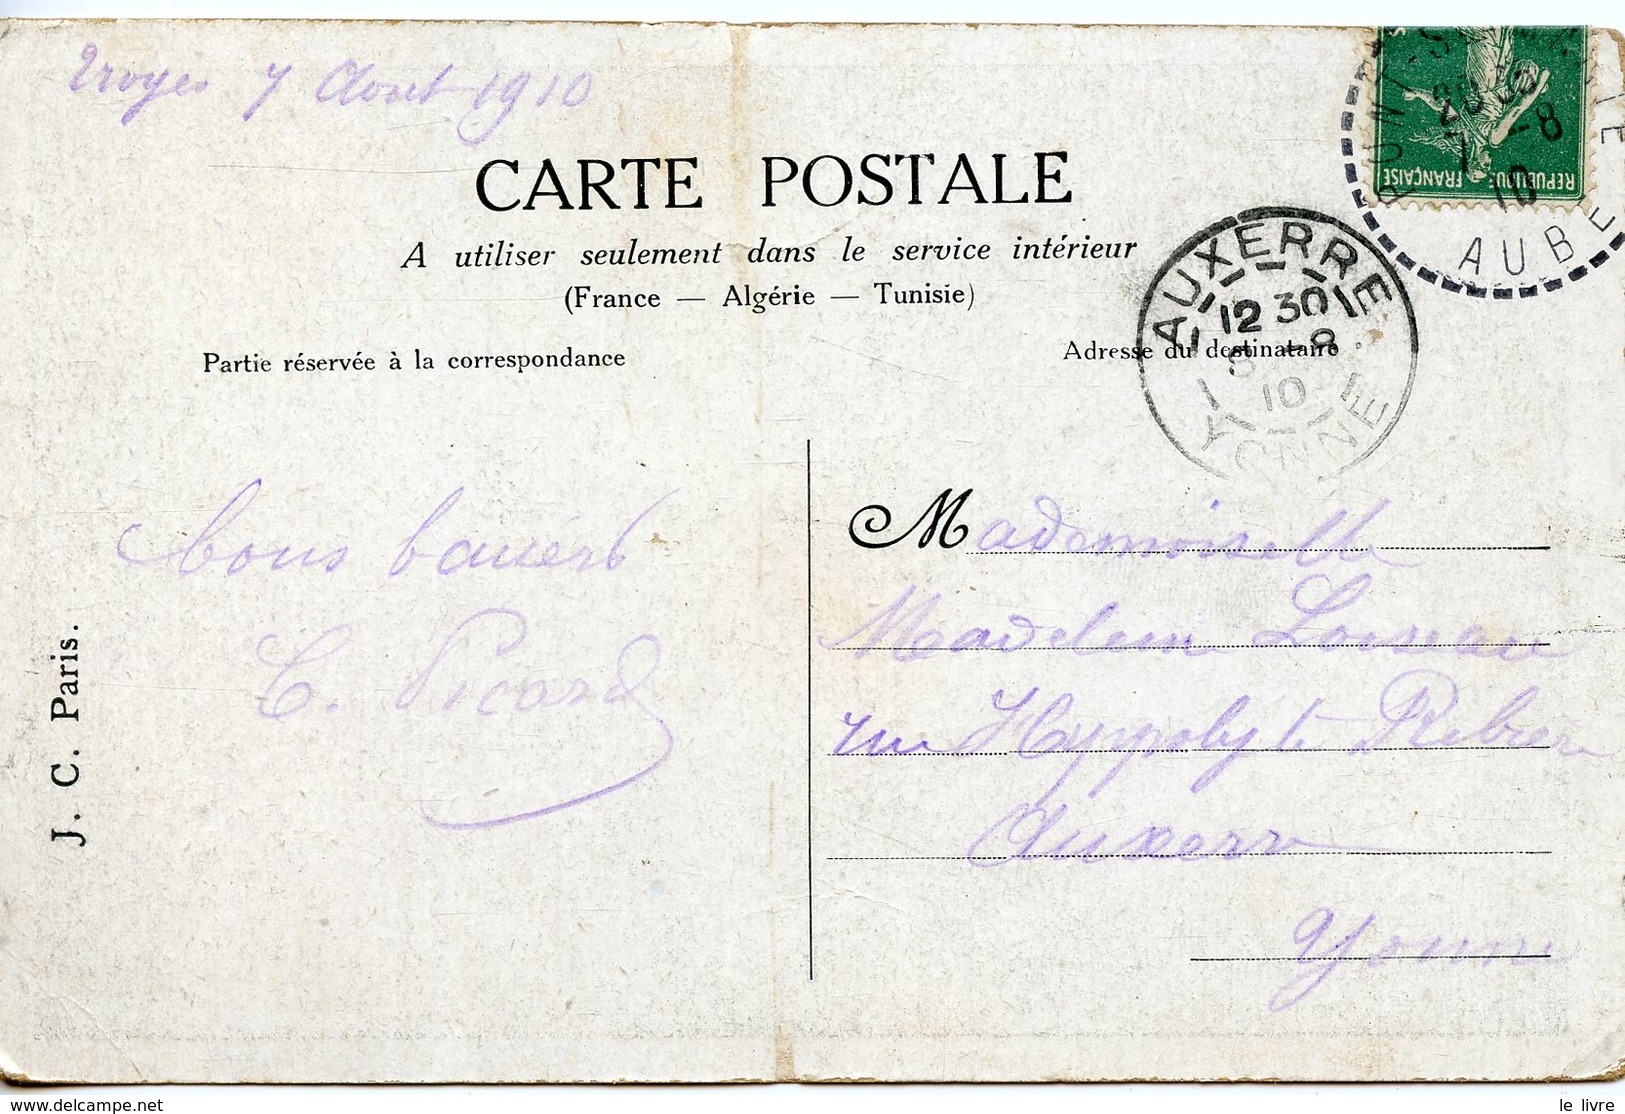 Troyes 7 Aout 1910
CARTE POSTALE
A utiliser seulement dans le service intérieur
(France — Algérie — Tunisie)
Partie réservée à la correspondance
Adresse du destinataire
AUXERRE
12 30
8 -8
10
YONNE
PONT-Ste-MARIE
7 -8
10
AUBE
REPUBLIQUE FRANÇAISE
bons baisers
C. Picard
J. C. Paris.
Mademoiselle
Madeleine Loiseau
rue Hyppolyte Ribière
Auxerre
Yonne
delcampe.net
le livre